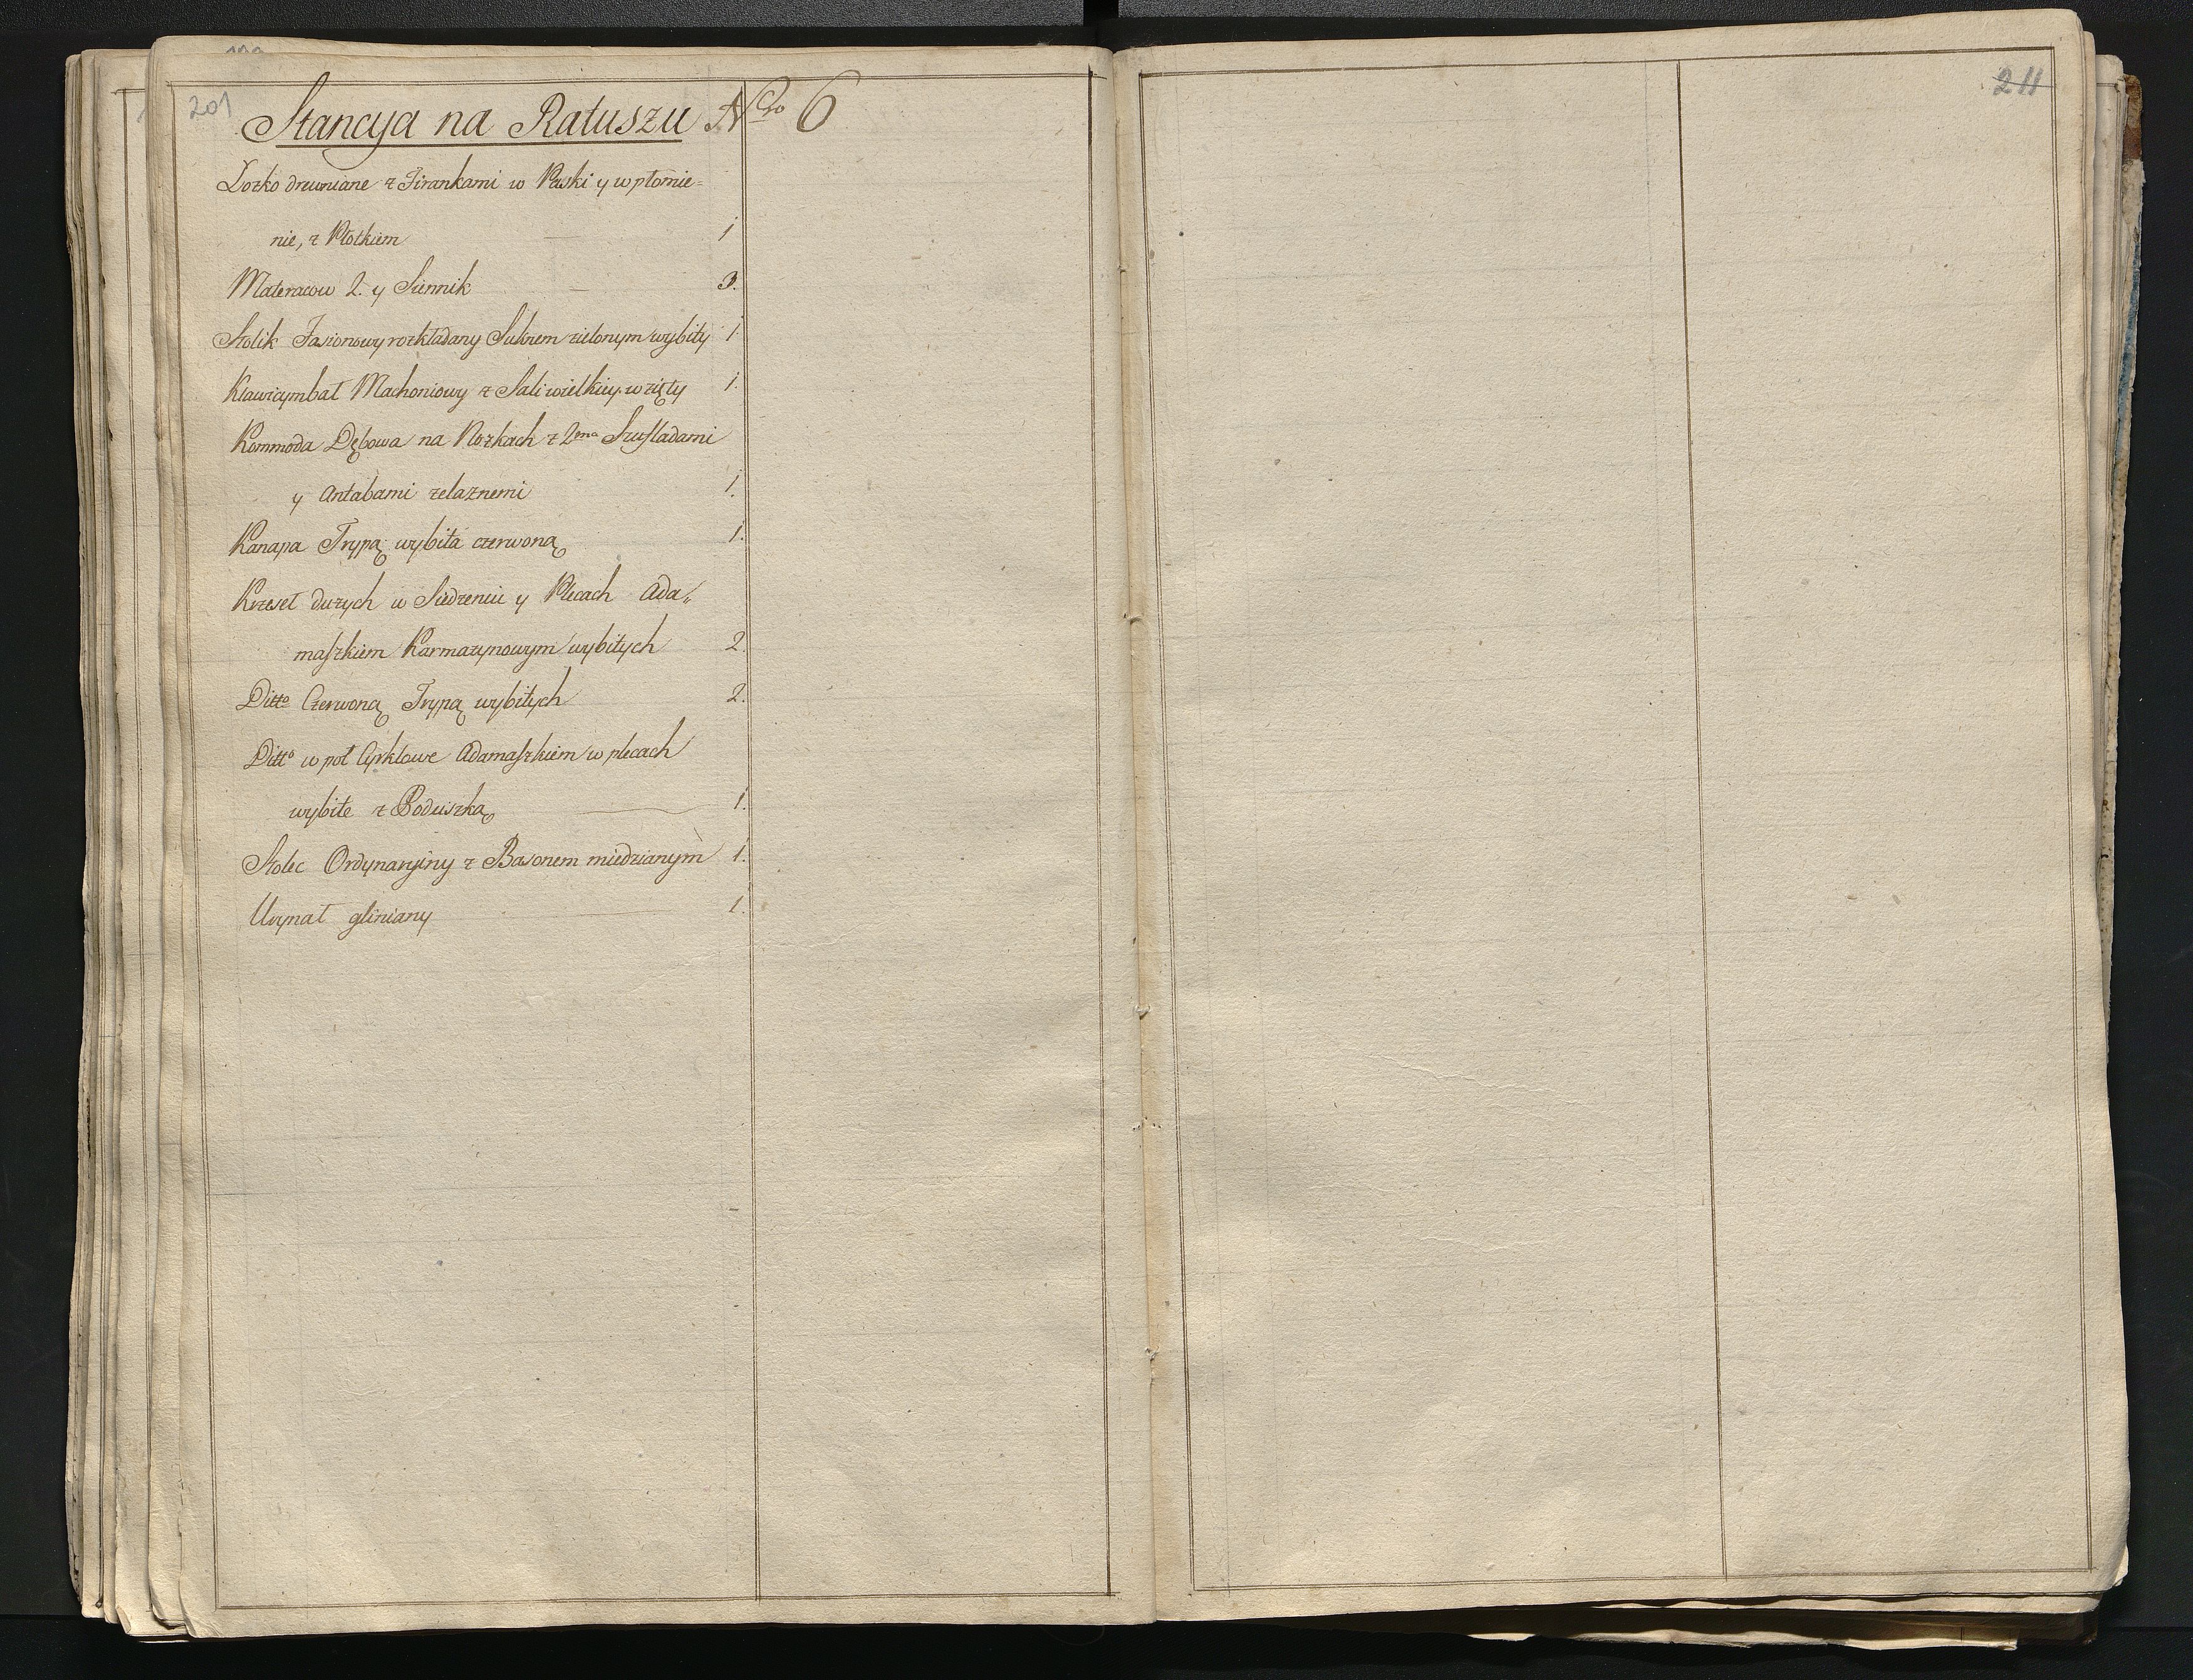 201
Stancyja na Ratuszu Nro 6
Łozko drewniane z Firankami w Paski y w płomie=
nie, z Płotkiem — 1
Materacow 2. y Siennik — 3.
Stolik Jasionowy rozkładany Suknem zielonym wybity 1.
Klawicymbał Machoniowy z Sali wielkiey wzięty 1.
Kommoda Dębowa na Nozkach z 2ma Szufladami
y Antabami zelaznemi 1.
Kanapa Trypą wybita czerwoną 1.
Krzeseł duzych w Siedzeniu y Plecach Ada„
maszkiem Karmazynowym wybitych 2.
Ditto Czerwoną Trypą wybitych 2.
Ditto w poł Cyrklowe Adamaszkiem w plecach
wybite z Poduszką — 1.
Stolec Ordynaryiny z Basonem miedzianym 1.
Urynał gliniany — 1.
211